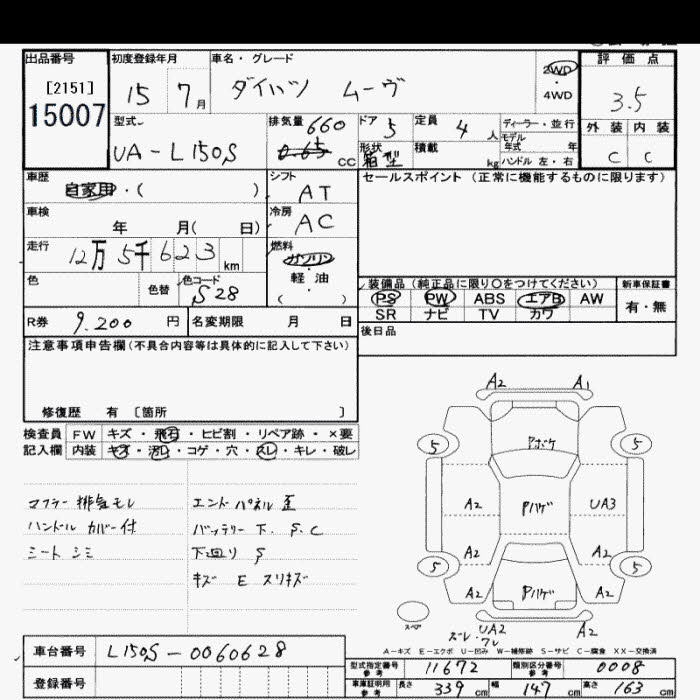 出品番号 初度登録年月 車名・グレード 評価点
[2151] 15 7月 ダイハツ ムーヴ 2WD・4WD 3.5
15007
型式 排気量 ドア 定員 ディーラー・並行 外装 内装
UA-L150S 660 0.65 CC 5 4人 モデル年式 年
形状 箱型 積載 kg ハンドル 左・右 C C
車歴 自家用・( ) シフト AT セールスポイント (正常に機能するものに限ります)
車検 年 月( 日) 冷房 AC
走行 12万5千623km 燃料 ガソリン・軽油 ( )
色 色替 色コード S28 装備品 (純正品に限り○をつけてください) 新車保証書
PS PW ABS エアB AW 有・無
SR ナビ TV カワ
R券 9.200円 名変期限 月 日 後日品
注意事項申告欄(不具合内容等は具体的に記入して下さい)
修復歴 有 〔箇所 〕
検査員 FW キズ・飛石・ヒビ割・リペア跡・×要
記入欄 内装 キズ・汚レ・コゲ・穴・スレ・キレ・破レ
マフラー排気モレ エンドパネル歪
ハンドルカバー付 バッテリー下. S.C
シートシミ 下回りS
キズ E スリキズ
A2 A1
5 Aボケ 5
A2 Pハゲ UA3
A2 A2
5 5
A2 Pハゲ A2
スペア
ズレ・ワレ UA2 A2
A-キズ E-エクボ U-凹み W-補修跡 S-サビ C-腐食 XX-交換済
車台番号 L150S-0060628
登録番号
型式指定番号 参考 11672 類別区分番号 参考 0008
車庫証明用 参考 長さ 339cm 幅 147cm 高さ 163cm